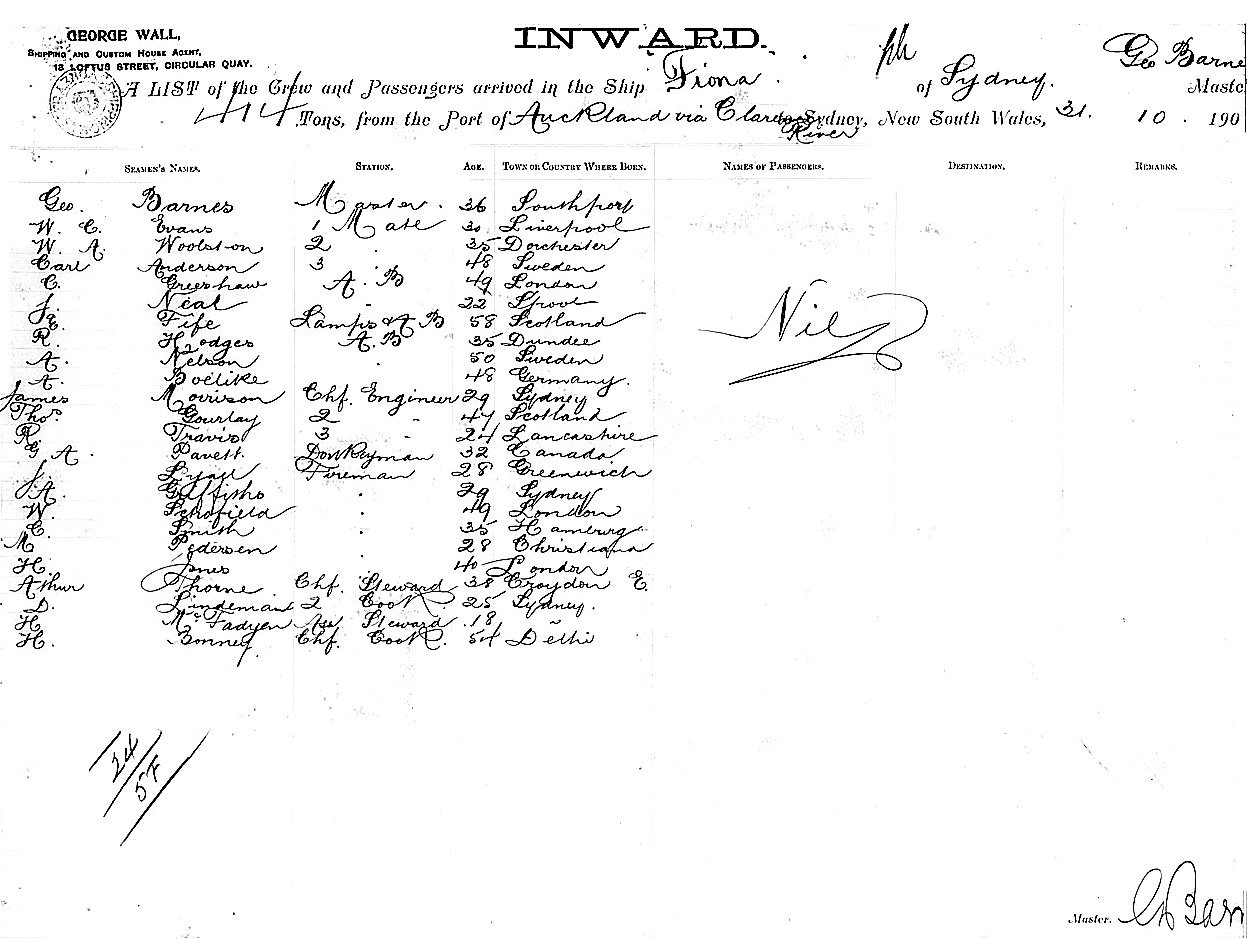 GEORGE WALL,
SHIPPING AND CUSTOM HOUSE AGENT,
13 LOFTUS STREET, CIRCULAR QUAY.
INWARD.
Geo Barne
Maste
A LIST of the Crew and Passengers arrived in the Ship Fiona. of Sydney.
414 Tons, from the Port of Auckland via Clarence River Sydney, New South Wales, 31. 10. 190
SEAMEN'S NAMES. STATION. AGE. TOWN OR COUNTRY WHERE BORN. NAMES OF PASSENGERS. DESTINATION. REMARKS.
Geo. Barnes Master. 36 Southport
W. C. Evans 1 Mate 30 Liverpool
W. A. Woolston 2 " 35 Dorchester
Carl Anderson 3 " 48 Sweden
C. Greeshaw A. B 49 London
J. Neal " 22
Fife Lamps & A B 58 Scotland
R. Hodges A. B 35 Dundee
A. Nelson " 50 Sweden
A. Boelike " 48 Germany.
Nil
James Morrison Chf. Engineer 29 Sydney
Thos. Gourlay 2 " 47 Scotland
R. Travis 3 " 24 Lancashire
G A. Pavett Donkeyman 32 Canada
J. Lyall Fireman 28 Greenwich
J A. Griffiths " 29 Sydney
W. Schofield " 49 London
C. Smith " 35 Hamburg
M Pedersen " 28 Christiana
H. Jones " 40 London
Arthur Thorne Chf. Steward 38 Croydon E.
D. Lindeman 2 Cook 25 Sydney.
H. McFadyen Steward 18 "
H. Bonney Chf. Cook. 54 Delhi
24
57
Master. G Barn